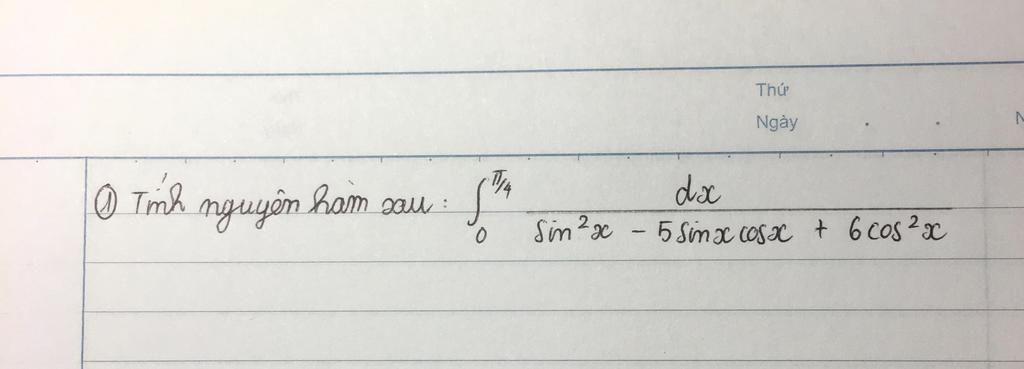 Thứ
Ngày
N
① Tính nguyên hàm sau: ∫₀^{π/4} dx / (sin²x − 5 sinx cosx + 6 cos²x)